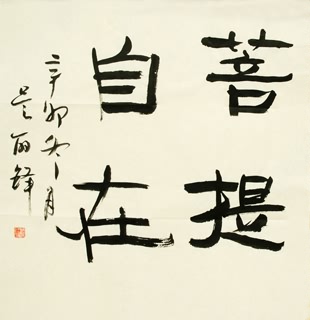 菩提
自在
辛卯冬月
吴丽